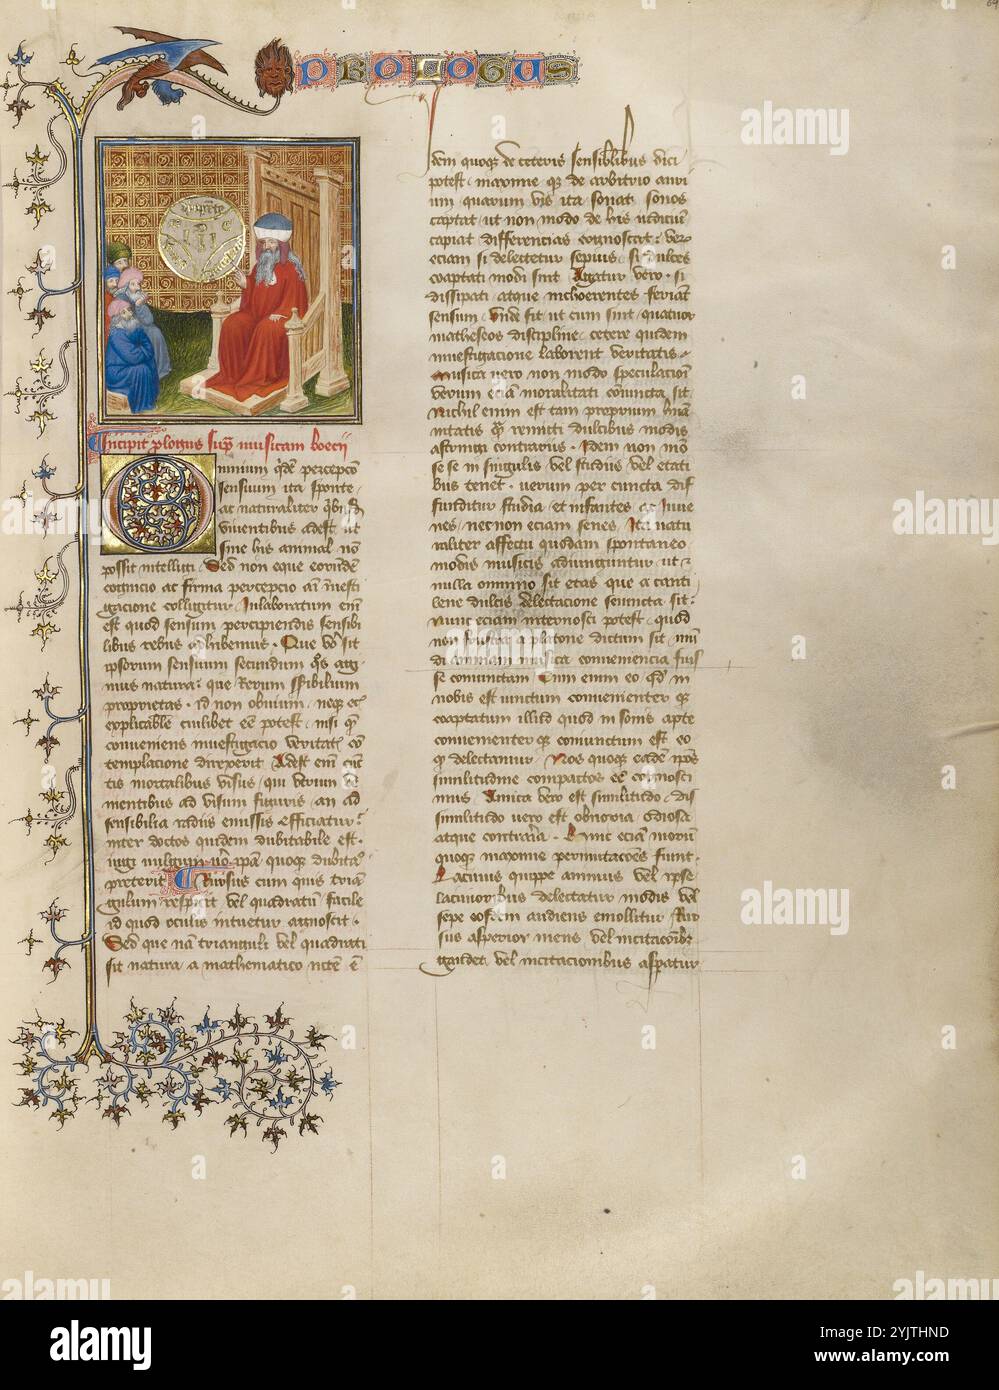 PROLOGUS
Incipit plogus sup musicam boecii
Omnium qde percepcio
sensuum ita sponte
ac naturaliter qbusdã
viventibus adest ut
sine his animal nõ
possit intelligi. Sed non eque eorundẽ
cognicio ac firma percepcio añi investi
gacione colligitur. Inlaboratum eñi
est quod sensum percipiendis sensibi
libus rebus adhibemus. Que vo sit
ipsorum sensuum secundum qs
mus natura. que rerum sensibilium
proprietas. id non obvium. neque
explicabile cuilibet eẽ potest. nisi quẽ
conveniens investigacio veritatis cõ
templacione direxerit. Adest eni cũc
tis mortalibus visus. qui utrum ve
nientibus ad visum figuris. an ad
sensibilia radiis emissis efficiatur.
inter doctos quidem dubitabile est.
vulgum vo ipsa quoque dubita
preterit. Rursus cum quis trian
gulum respicit vel quadratũ facile
id quod oculis intuetur agnoscit.
Sed que nã trianguli vel quadrati
sit natura a mathematico ẽ
Idem quoque de ceteris sensibilibus dici
potest. maxime que de arbitrio auri
um quarum vis ita sonat sonos
captat ut non modo de his iudicium
capiat differencias cognoscat. ver
eciam si delectetur sepius. si dulces
coaptati modi sint. Agatur vero. si
dissipati atque incoherentes feriant
sensum. Unde fit ut cum sint quatuor
matheseos discipline. cetere quidem
investigacione laborent veritatis.
Musica vero non modo speculacioni
verum eciã moralitati coniuncta sit.
Nichil enim est tam proprium humã
nitatis quã remitti dulcibus modis
astringi contrariis. Idem non mõ
se se in singulis vel studiis vel etati
bus tenet. verum per cuncta dif
funditur studia. et infantes ac iuve
nes. necnon eciam senes. Ita natu
raliter affectu quodam spontaneo
modis musicis adiunguntur. ut
nulla omnino sit etas que a canti
lene dulcis delectacione seiuncta sit.
Hinc eciam internosci potest. quod
non frustra a platone dictum sit. mũ
di animam musica conveniencia fuis
se coniunctam. Cum enim eo quod in
nobis est iunctum convenienter que
coaptatum illud quod in sonis apte
convenienter que coniunctum est eo
que delectamur. Nos quoque eadem ipos
similitudine compactos eẽ cognosci
mus. Amica vero est similitudo. dis
similitudo vero est obnoxia odiosa
atque contraria. Hinc eciam morum
quoque maxime permutacões fiunt.
Lacivus quippe animus vel ipse
lacivioribus delectatur modis vel
sepe eosdem audiens emollitur. Rur
sus asperior mens. vel incitacõibr
gaudet. vel incitacionibus aspatur
alamy
Image ID: 2YJTHND
www.alamy.com